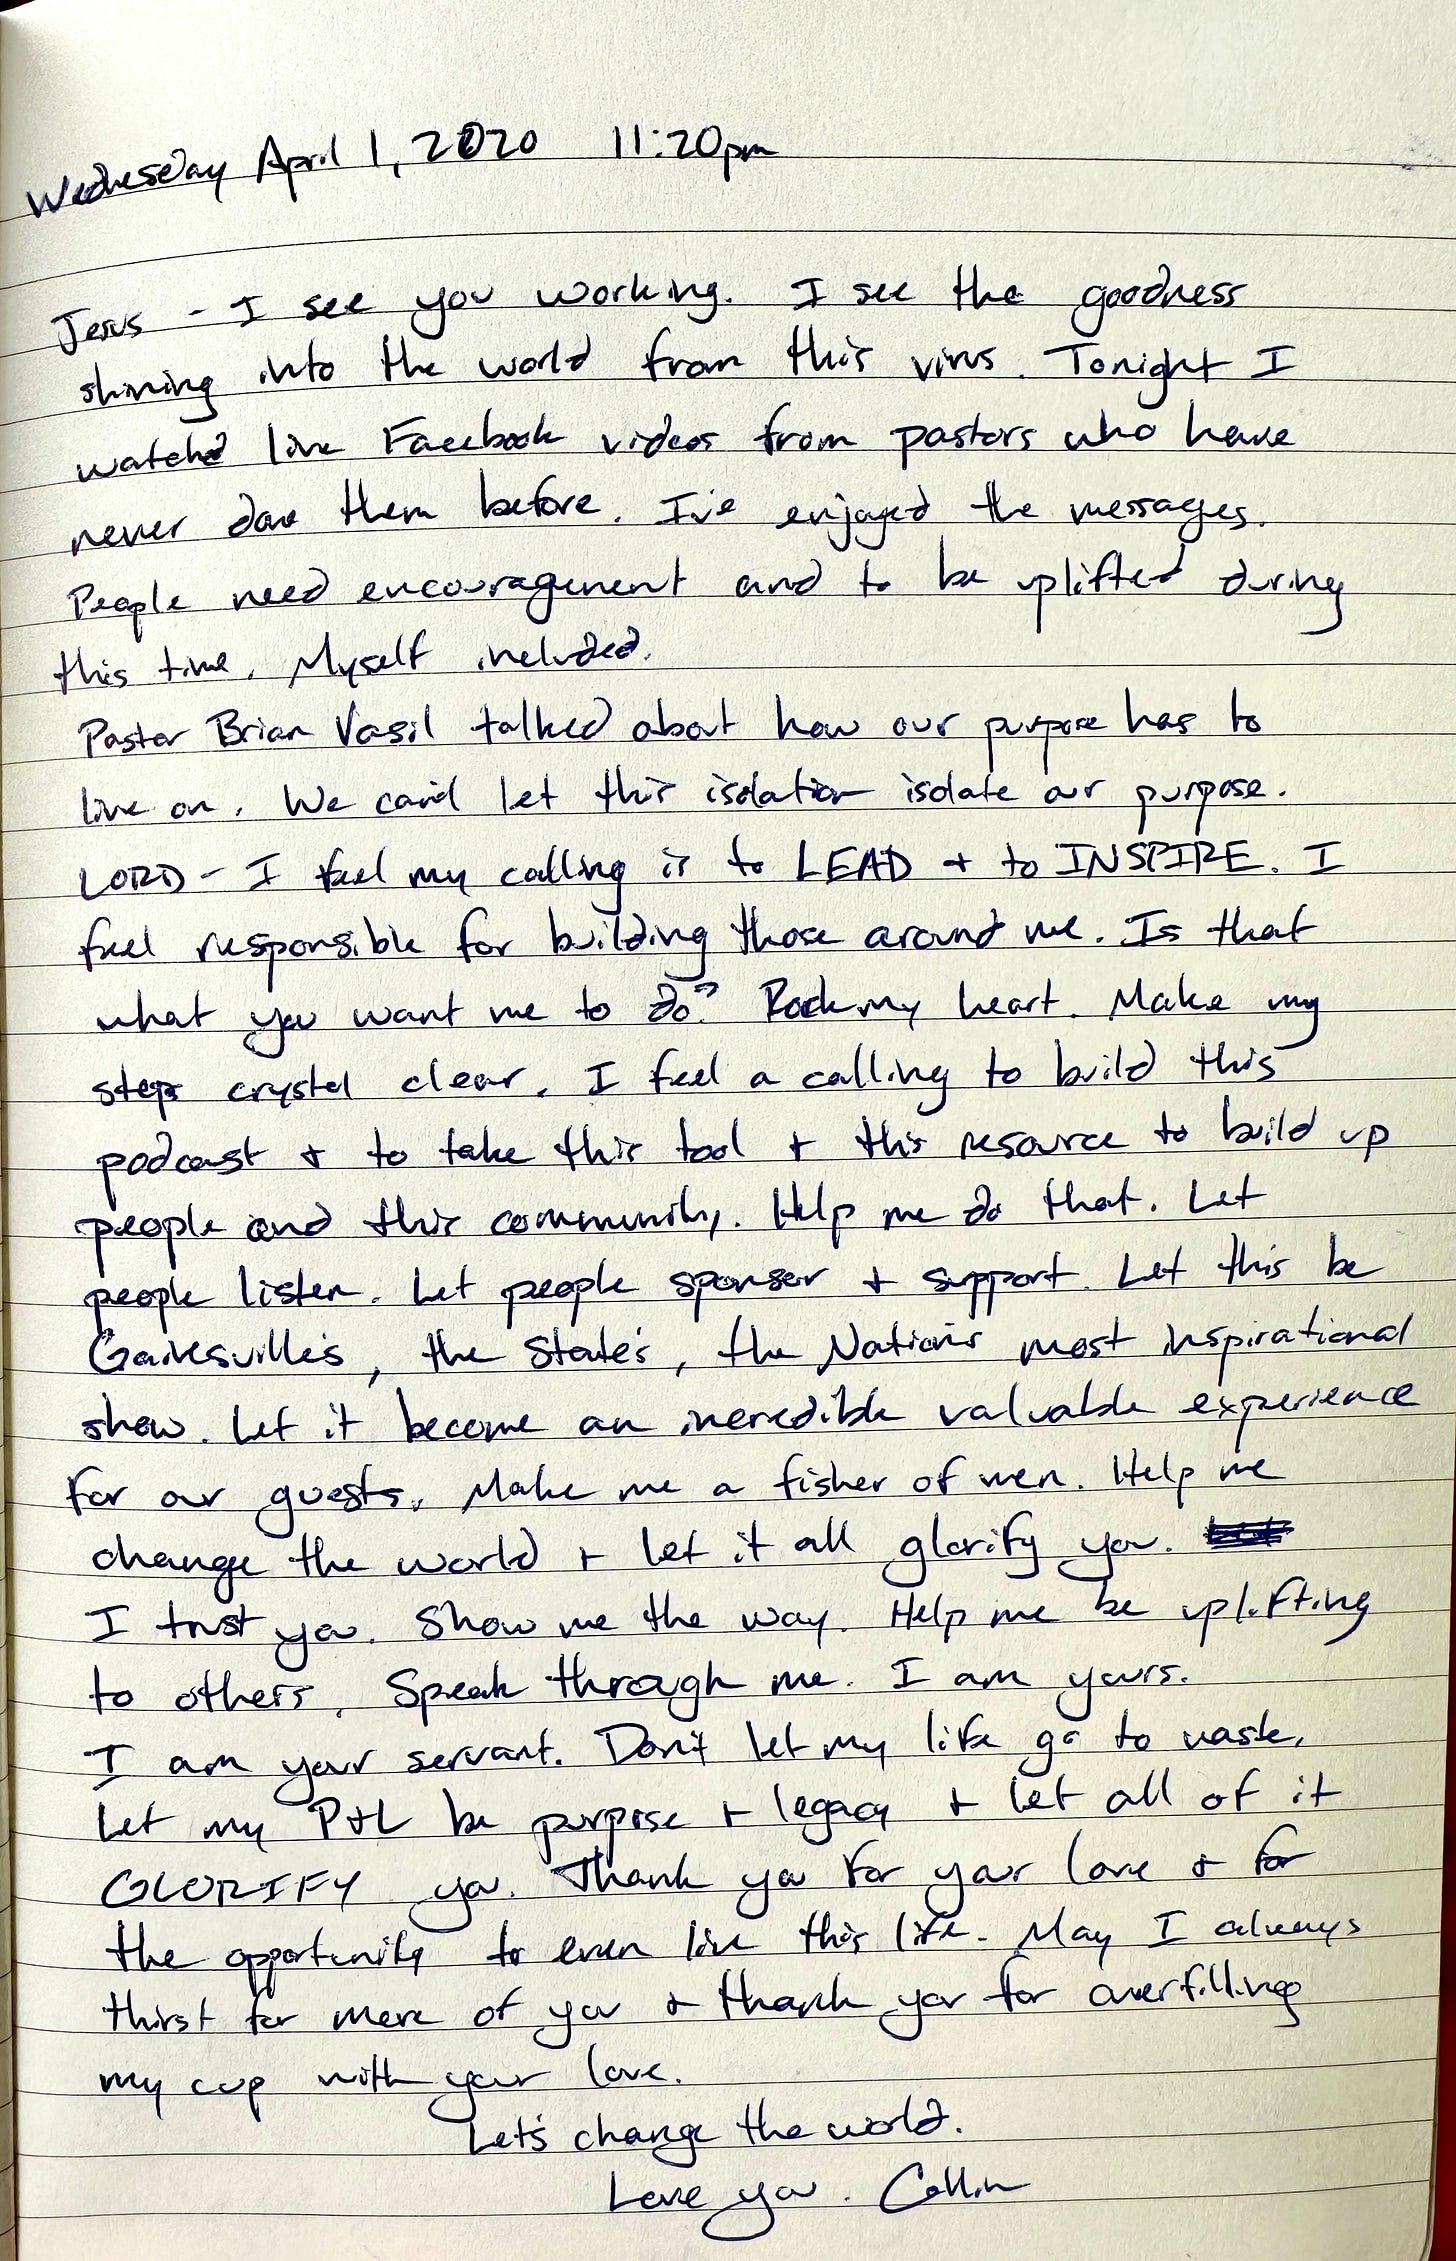 Wednesday April 1, 2020 11:20pm
Jesus - I see you working. I see the goodness
shining into the world from this virus. Tonight I
watched live Facebook videos from pastors who have
never done them before. I've enjoyed the messages.
People need encouragement and to be uplifted during
this time. Myself included.
Pastor Brian Vasil talked about how our purpose has to
live on. We can't let this isolation isolate our purpose.
LORD - I feel my calling is to LEAD + to INSPIRE. I
feel responsible for building those around me. Is that
what you want me to do? Rock my heart. Make my
steps crystal clear. I feel a calling to build this
podcast + to take this tool + this resource to build up
people and this community. Help me do that. Let
people listen. Let people sponser + support. Let this be
Gainesville's, the State's, the Nation's most inspirational
show. Let it become an incredible valuable experience
for our guests. Make me a fisher of men. Help me
change the world + let it all glorify you.
I trust you. Show me the way. Help me be uplifting
to others. Speak through me. I am yours.
I am your servant. Don't let my life go to waste.
Let my P+L be purpose + legacy + let all of it
GLORIFY you. Thank you for your love + for
the opportunity to even live this life. May I always
thirst for more of you + thank you for overfilling
my cup with your love.
Let's change the world.
Love you. Collin